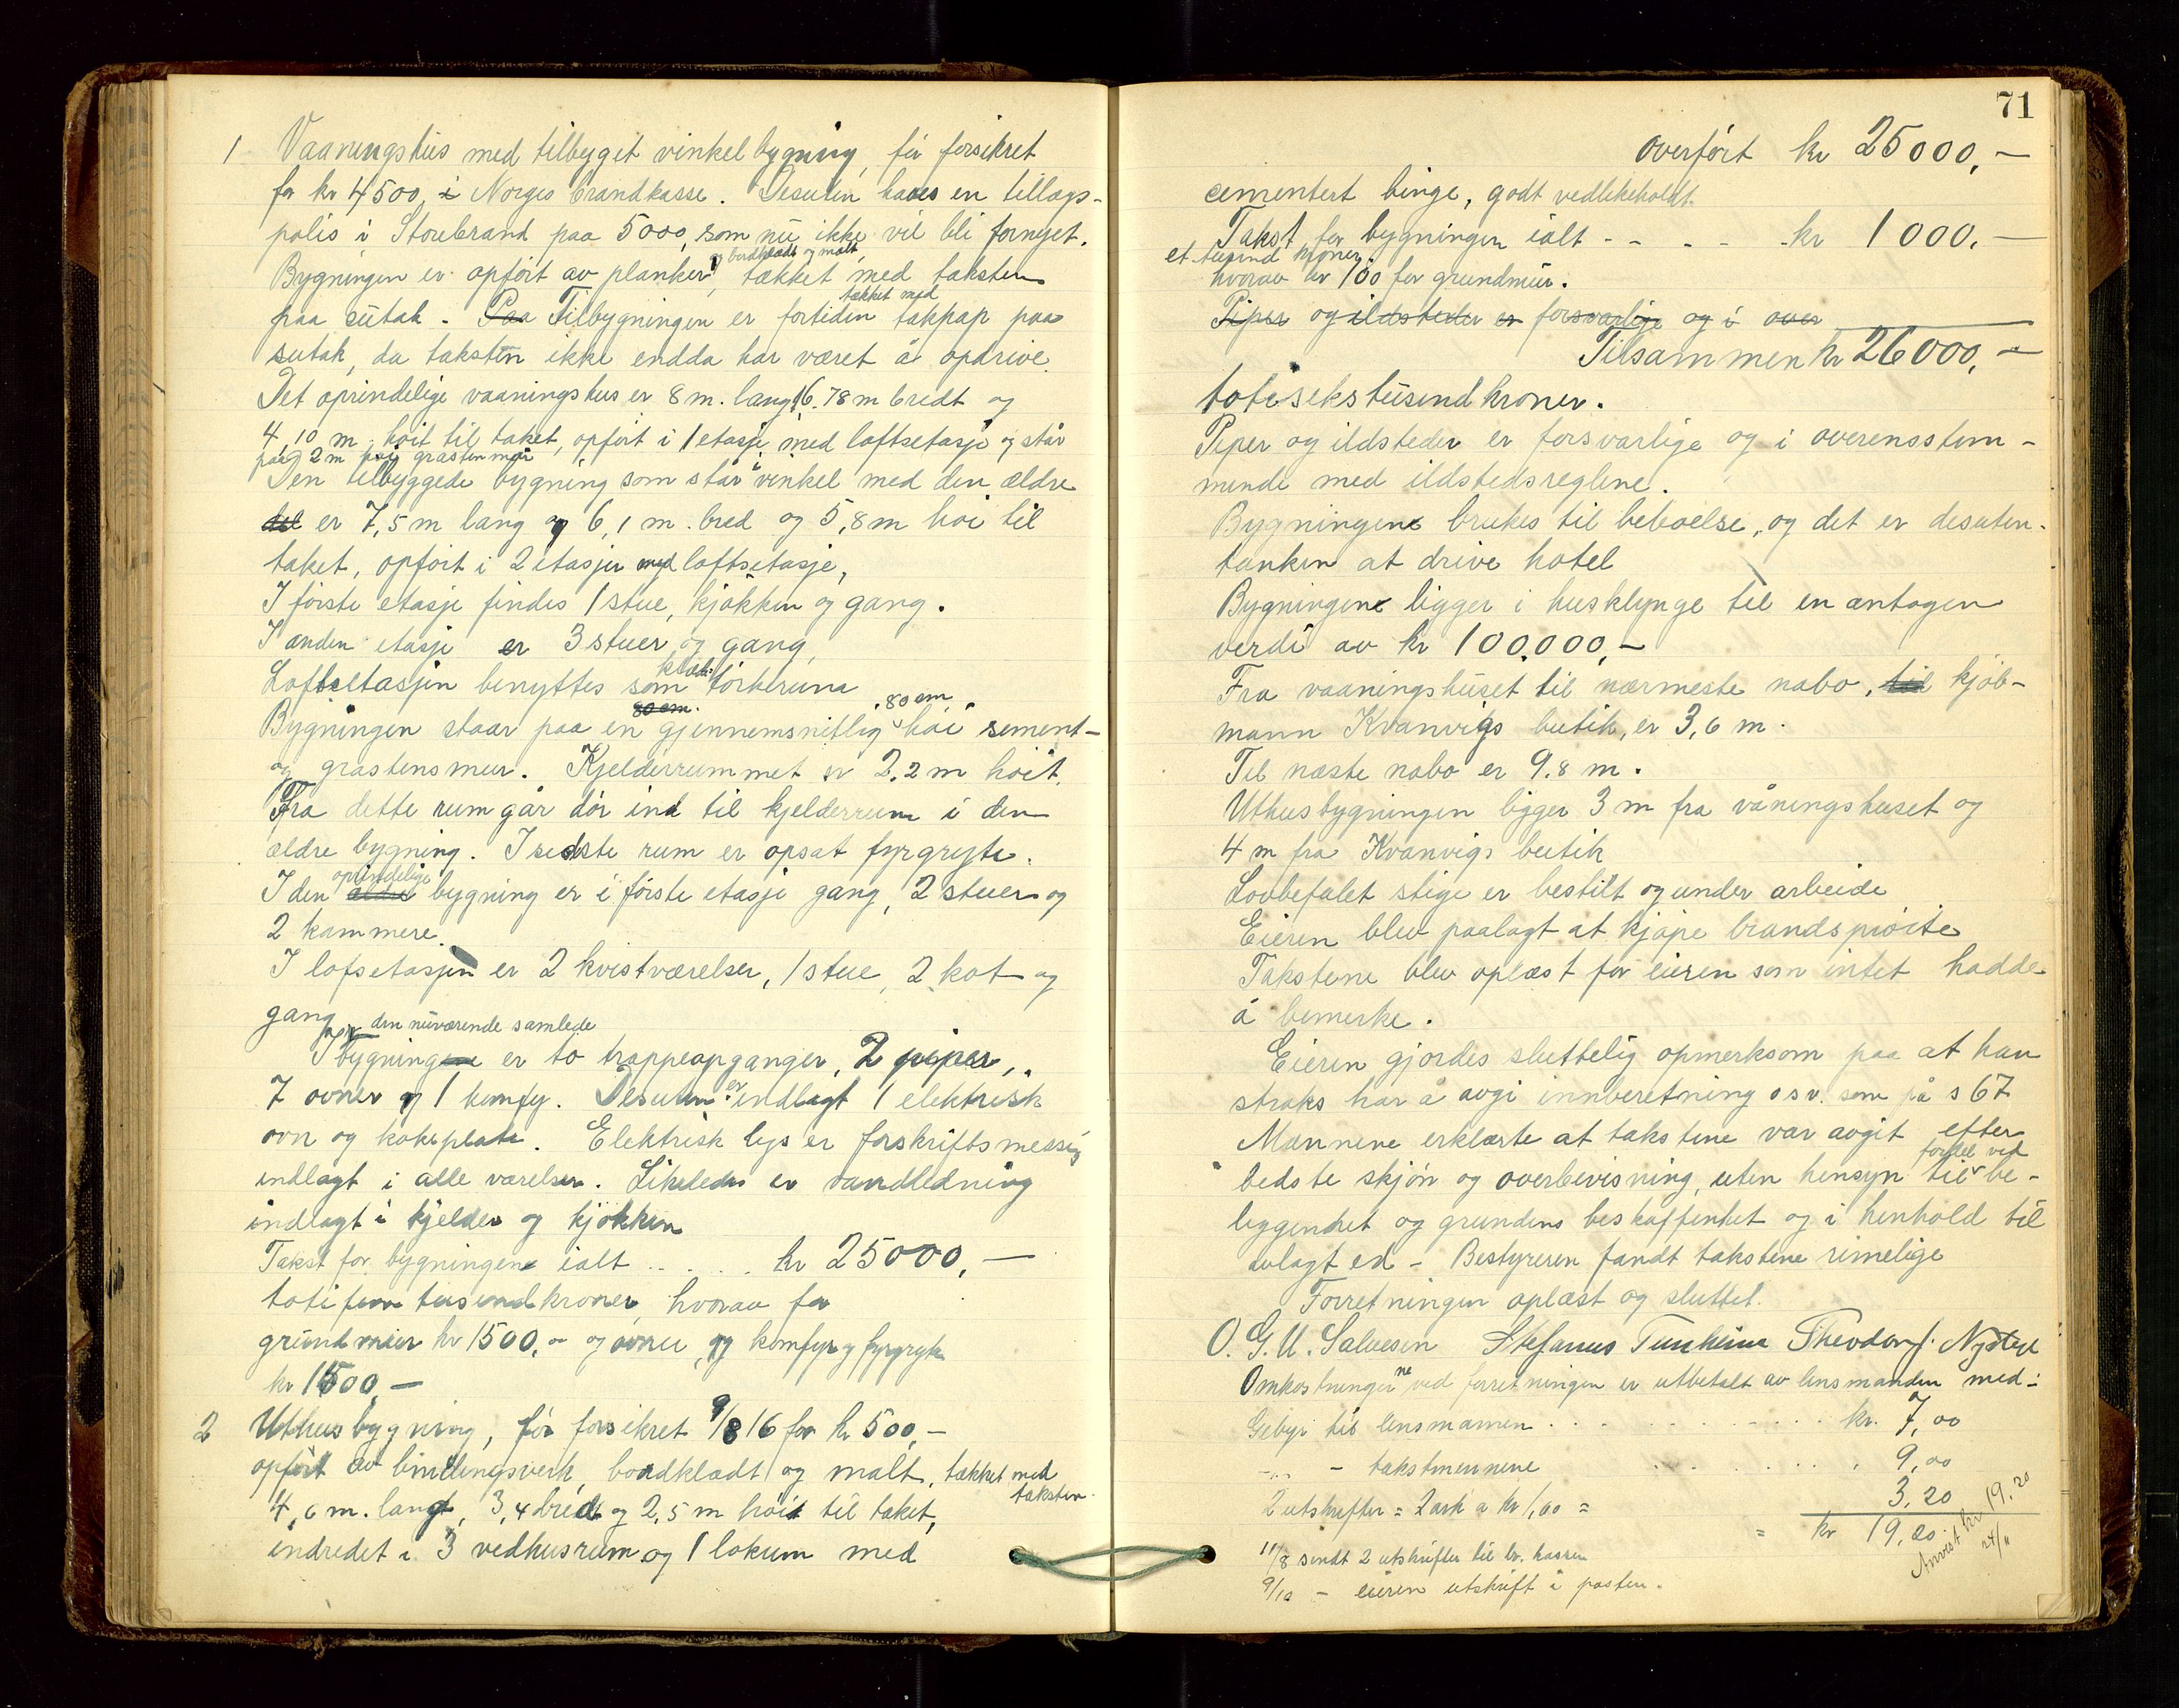 1 Vaaningshus med tilbyget vinkelbygning, før forsikret
for kr 4500, i Norges brandkasse. Desuten haves en tillægs-
polis i Storebrand paa 5000, som nu ikke vil bli fornyet.
og bordklædt og malt,
Bygningen er opført av planker, tækket med taksten
tækket med
paa sutak. Paa Tilbygningen er fortiden takpap paa
sutak, da taksten ikke endda har været å opdrive.
Det oprindelige vaaningshus er 8 m. langt, 6.78 m bredt og
4,10 m. høit til taket, opført i 1 etasje med loftsetasje og står
paa 2 m høi gråstenmur
Den tilbyggede bygning som står i vinkel med den ældre
del er 7,5 m lang og 6,1 m. bred og 5,8 m høi til
taket, opført i 2 etasjer med loftsetasje,
I første etasje findes 1 stue, kjøkken og gang.
I anden etasje er 3 stuer og gang,
klæde
Loftsetasjen benyttes som tørkerum
80 cm. 80 cm
Bygningen staar paa en gjennemsnitlig høi sement-
og gråstensmur. Kjelderrummet er 2,2 m høit.
Fra dette rum går dør ind til kjelderrum i den
ældre bygning. I sidste rum er opsat fyrgryte.
oprindelige
I den ældre bygning er i første etasje gang, 2 stuer og
2 kammere.
I lofsetasjen er 2 kvistværelser, 1 stue, 2 kot og
gang.
den nuværende samlede
I bygningene er to trappeopganger, 2 piper,
7 ovner og 1 komfyr. Desuten er indlagt 1 elektrisk
ovn og kokeplate. Elektrisk lys er forskriftsmessig
indlagt i alle værelser. Likeledes er vandledning
indlagt i kjelder og kjøkken
Takst for bygningene ialt . . . . kr 25000,—
totifem tusend kroner, hvorav for
grundmur kr 1500,- og ovner, og komfyr og fyrgryte
kr 1500,—
2 Uthusbygning, før forsikret 9/8 16 for kr 500,—
opført av bindingsverk, bordklædt og malt, tækket med
taksten.
4,6 m. langt, 3,4 bredt og 2,5 m høit til taket,
indredet i 3 vedhusrum og 1 lokum med
71
overført kr 25000,—
cementert binge, godt vedlikeholdt.
Takst for bygningen ialt - - - - - kr 1000.—
et tusind kroner
hvorav kr 100 for grundmur.
Piper og ildsteder er forsvarlige og i over
Tilsammen kr 26000,—
totisekstusend kroner.
Piper og ildsteder er forsvarlige og i overensstem-
mende med ildstedsreglene.
Bygningene brukes til beboelse, og det er desuten
tanken at drive hotel
Bygningene ligger i husklynge til en antagen
verdi av kr 100.000,—
Fra vaaningshuset til nærmeste nabo, til kjøb-
mann Kvanvigs butik, er 3,6 m.
Til næste nabo er 9.8 m.
Uthusbygningen ligger 3 m fra våningshuset og
4 m fra Kvanvigs butik
Lovbefalet stige er bestilt og under arbeide
Eieren blev paalagt at kjøpe brandsprøite
Takstene blev oplæst for eieren som intet hadde
å bemerke.
Eieren gjordes sluttelig opmerksom paa at han
straks har å avgi innberetning osv. som på s 67
Mannene erklærte at takstene var avgit efter
fordel ved
bedste skjøn og overbevisning, uten hensyn til be-
liggenhet og grundens beskaffenhet og i henhold til
avlagt ed - Bestyreren fandt takstene rimelige
Forretningen oplæst og sluttet.
O. G. U. Salvesen Stefanus Tunheim Theodor J. Nystøl
Omkostningerne ved forretningen er utbetalt av lensmanden med:
Gebyr til lensmannen . . . . . . . . kr. 7,00
— „ — takstmennene . . . . . 9,00
2 utskrifter = 2 ark a kr 1,60 = 3,20
= kr 19,20
Anvist kr 19.20
24/11
11/8 sendt 2 utskrifter til br. kassen
9/10 — eieren utskrift i posten.